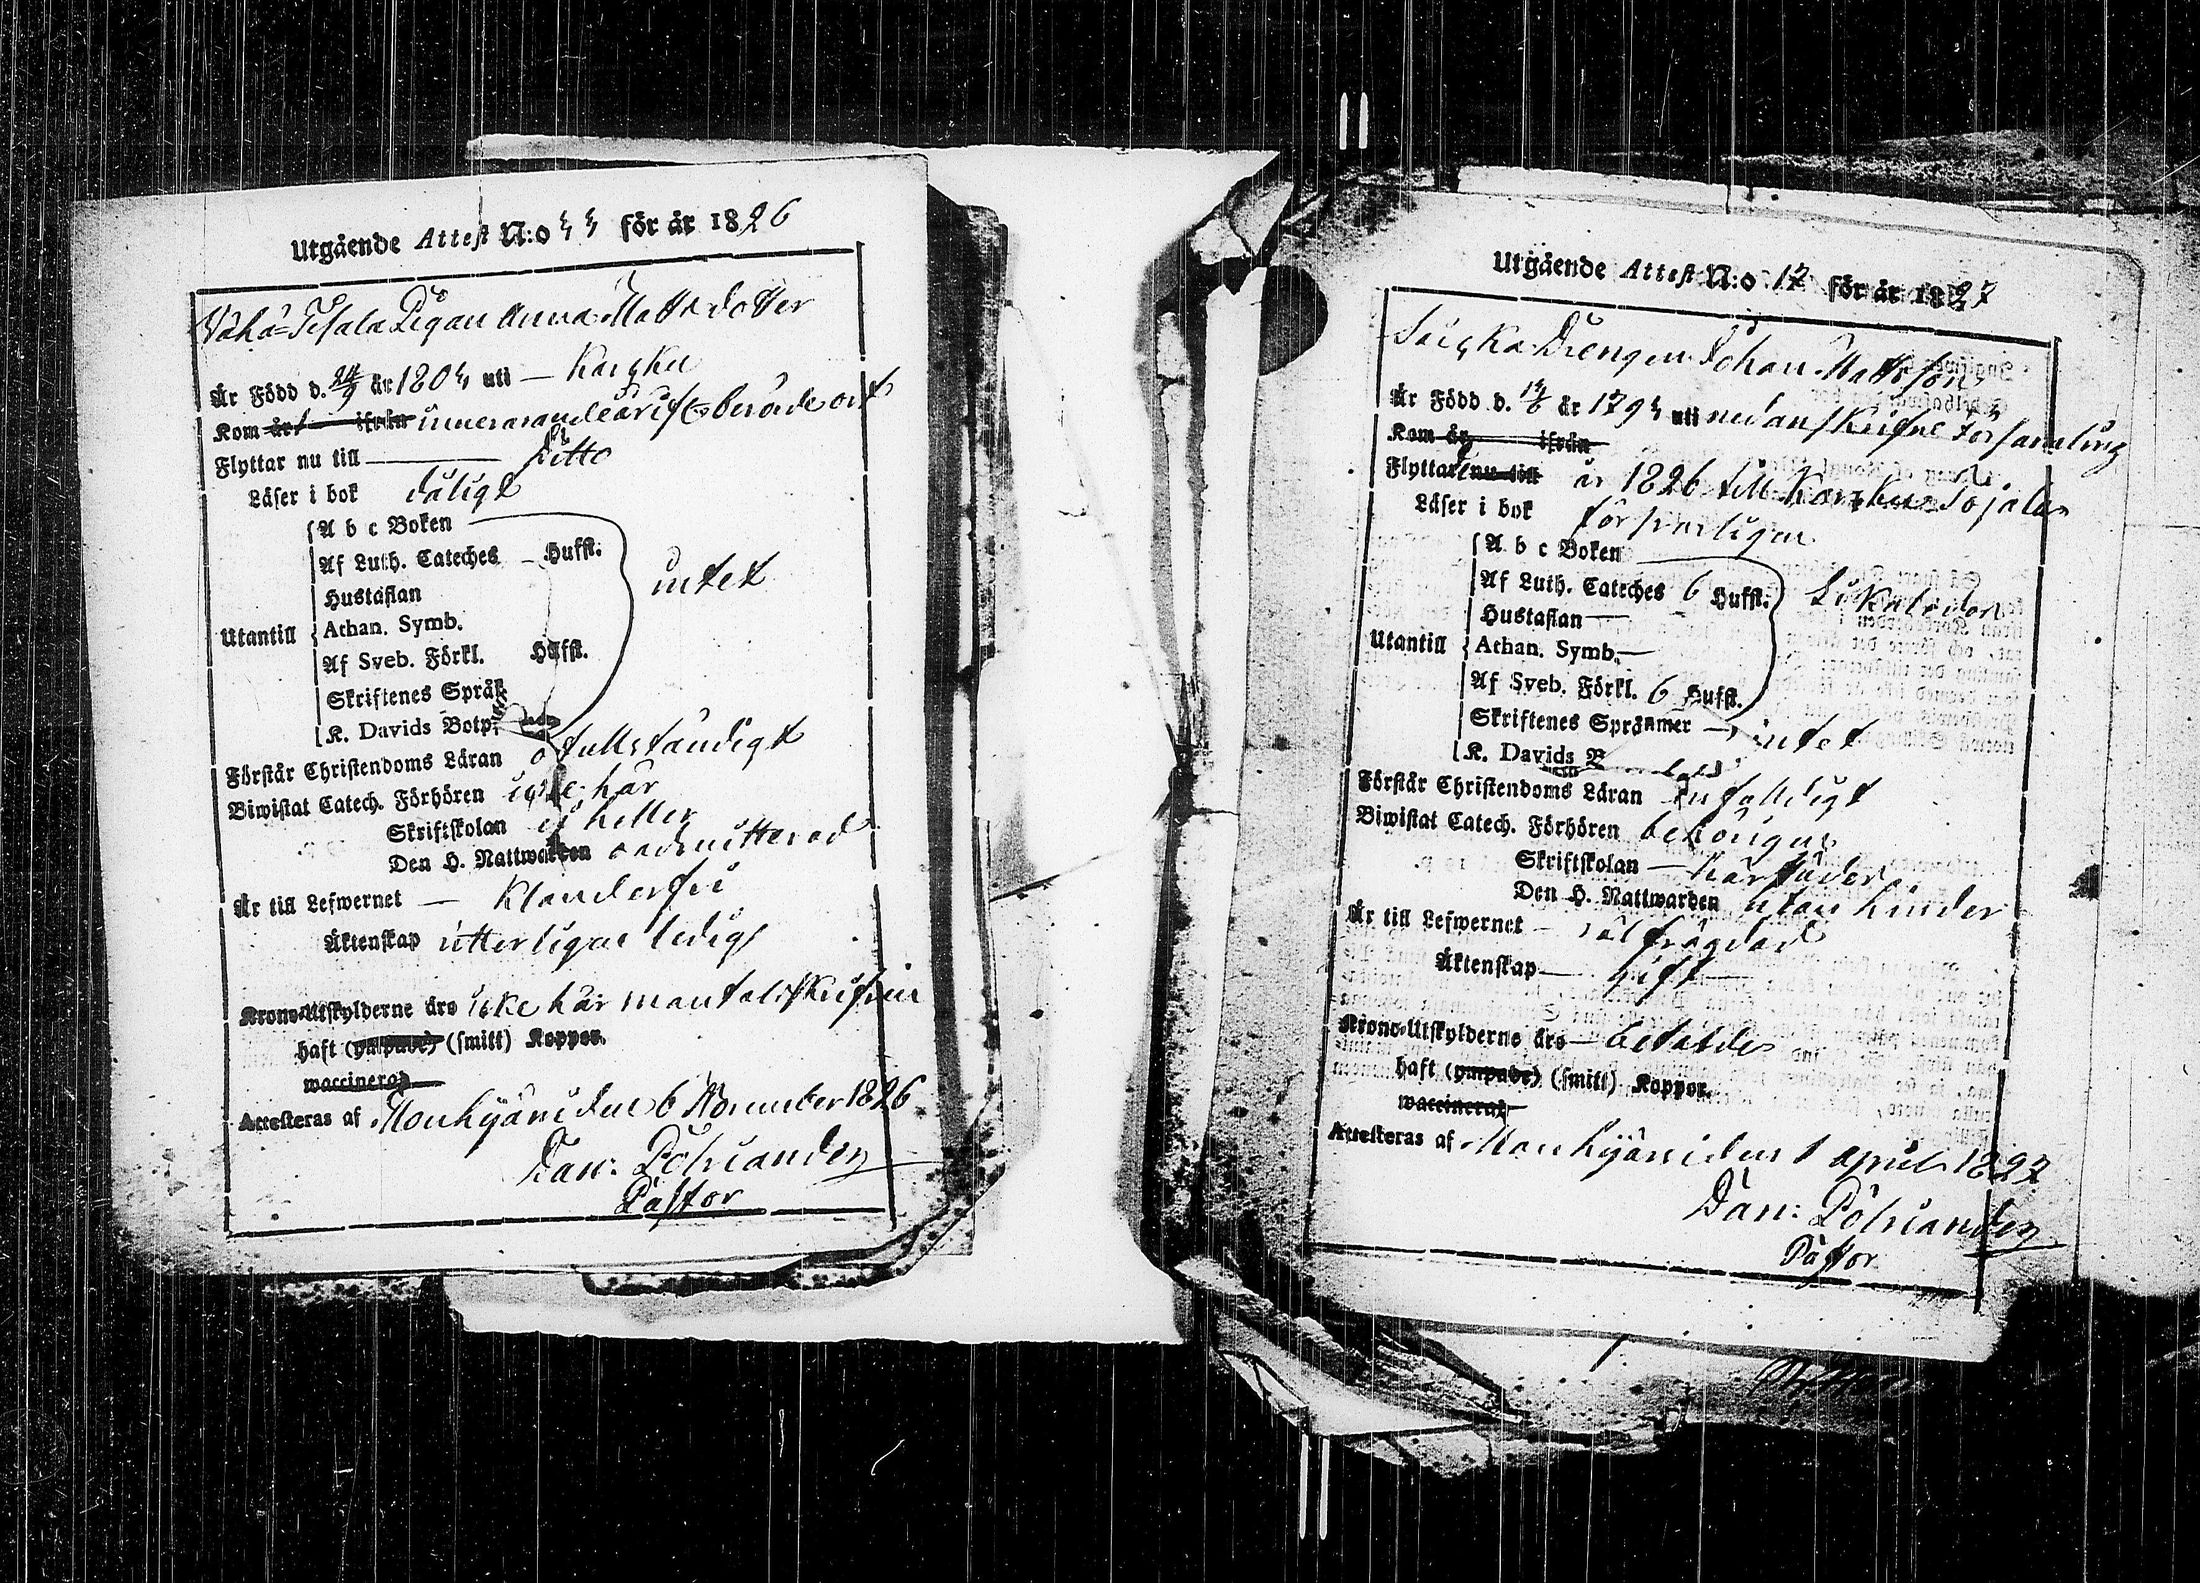 Utgående Attest N:o 44 för år 1826
Vähä-Tefala Pigan Anna Matts dotter
Är Född d. 24/9 år 1804 uti — Karsku
Kom år ifrån innevarande år ist berörde ort
Flyttar nu till — Ditto
Läser i bok dåligt
A b c Boken
Af Luth. Cateches — Hufst.
Hustaflan
intet
Utantill Athan. Symb.
Af Sveb. Förkl. Hufst.
Skriftenes Språk
K. Davids Botp.
Förstår Christendoms Läran ofullständigt
Biwistat Catech. Förhören icke här
Skriftskolan ej heller
Den H. Nattwarden oadmitterad
Är till Lefwernet — Klanderfri
Äktenskap ytterligare ledig
Krono-Utskylderne äro icke här mantalsskrifven
haft (ympade) (smitt) Koppor.
waccinerad
Attesteras af Mouhijärvi den 6 November 1826
Dan: Pölviander
Pastor
Utgående Attest N:o 17 för år 1827
Drengen Johan Mattsson
Är Född d. år 1794 uti nedanskrifne Församling
Kom år ifrån
Flyttat nu till år 1826 till Karkku Sojala
Läser i bok försvarligen
A b c Boken
Af Luth. Cateches 6 Hufst.
Likaledes
Hustaflan —
Utantill Athan. Symb. —
Af Sveb. Förkl. 6 Hufst.
Skriftenes Språk — intet
K. Davids B
Förstår Christendoms Läran enfaldigt
Biwistat Catech. Förhören behörigen
Skriftskolan —
Den H. Nattwarden utan hinder
Är till Lefwernet — väl frägdad
Äktenskap — gift —
Krono-Utskylderne äro — betalde
haft (ympade) (smitt) Koppor.
waccinerad
Attesteras af Mouhijärvi den 1 April 1827
Dan: Pölviander
Pastor